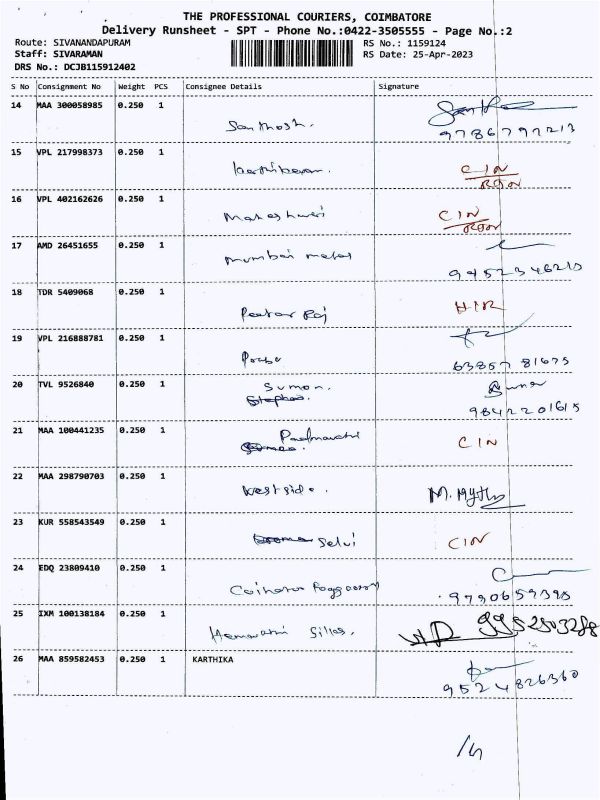 THE PROFESSIONAL COURIERS, COIMBATORE
Delivery Runsheet - SPT - Phone No.:0422-3505555 - Page No.:2
Route: SIVANANDAPURAM RS No.: 1159124
Staff: SIVARAMAN RS Date: 25-Apr-2023
DRS No.: DCJB115912402
S No Consignment No Weight PCS Consignee Details Signature
14 MAA 300058985 0.250 1
Santhosh.
15 VPL 217998373 0.250 1
CIN
16 VPL 402162626 0.250 1
Maheshwari CIN
17 AMD 26451655 0.250 1
mumbai
18 TDR 5409068 0.250 1
Raj
19 VPL 216888781 0.250 1
63857 81675
20 TVL 9526840 0.250 1
Suman.
Stephen. 9842201615
21 MAA 100441235 0.250 1
CIN
22 MAA 298790703 0.250 1
westside.
23 KUR 558543549 0.250 1
Selvi CIN
24 EDQ 23809410 0.250 1
9790659395
25 IXM 100138184 0.250 1
26 MAA 859582453 0.250 1 KARTHIKA
9524826360